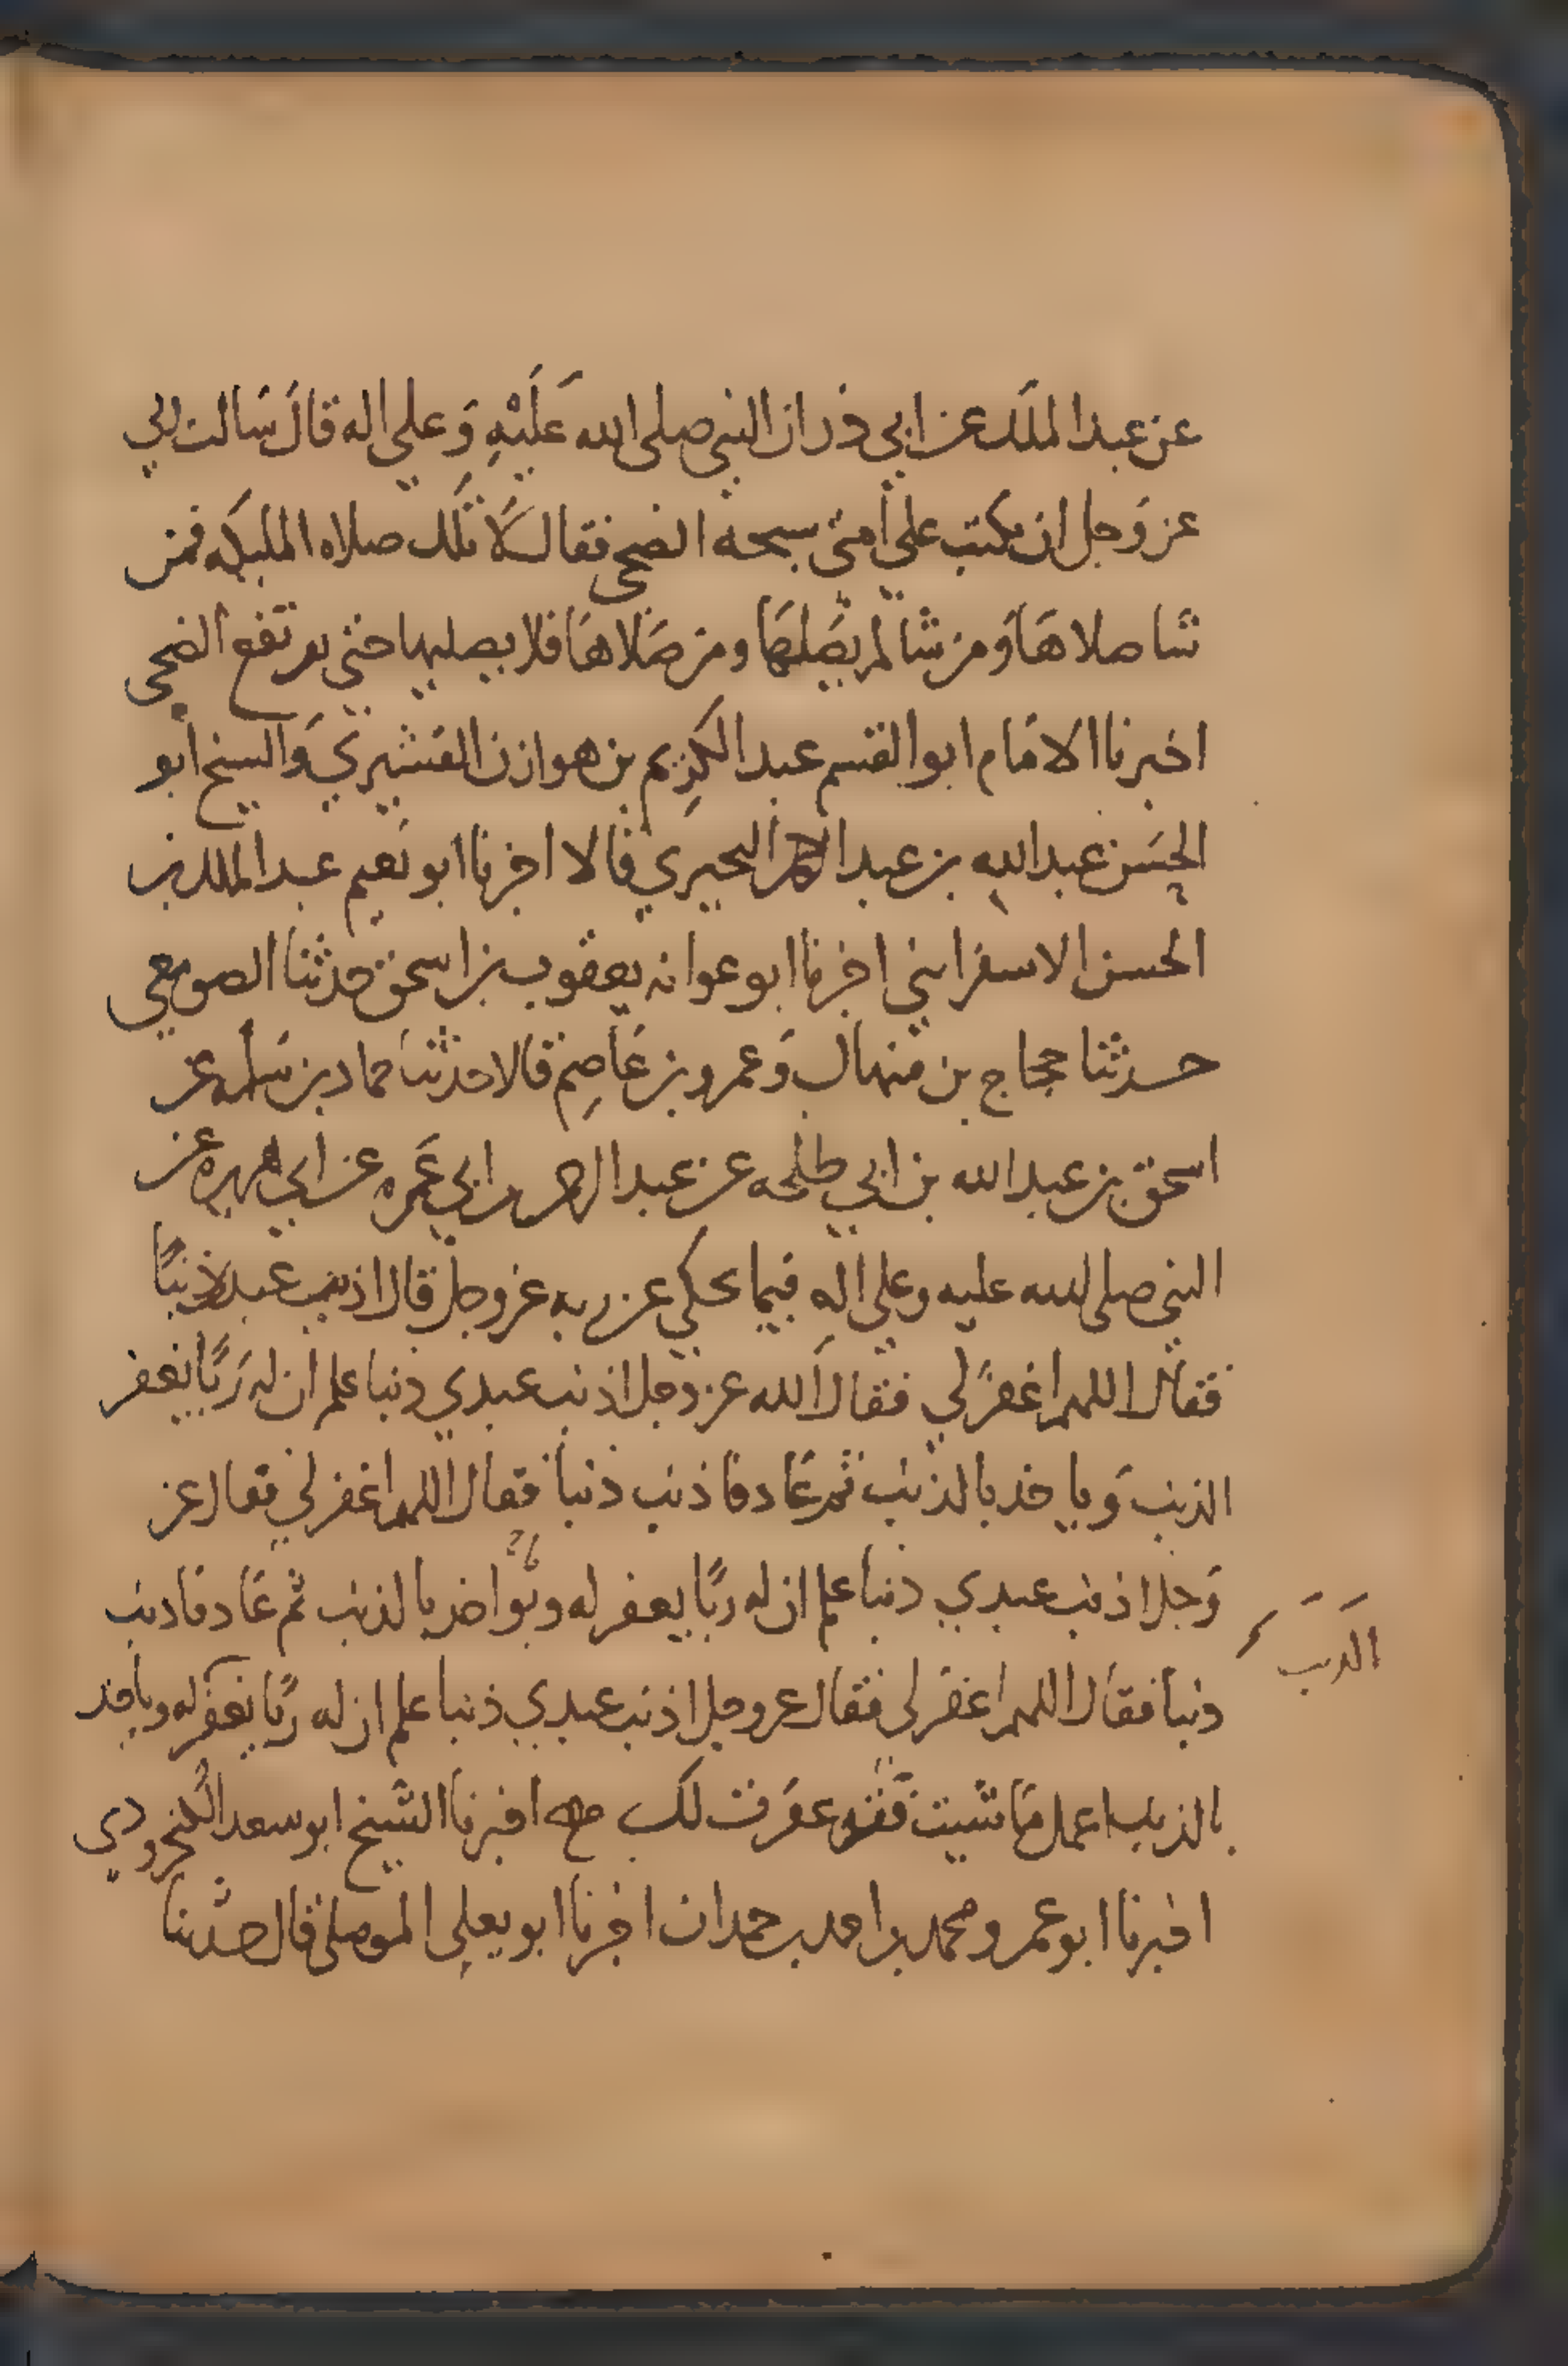 عن عبد الملك عن ابي ذر ان النبي صلى الله عَلَيْهِ وَعلي اله قالَ سَالت ربي
عز وَجل ان يكتب علي أمتي سبحه الضحى فقال لَا تلكَ صلاه المليكه فمن
شا صلاهَا وَمن شا لم يصَلهَا ومن صَلاهَا فلا يصليها حتى يرتفع الضحى
اخبرنا الامَام ابو القسم عبد الكَرِيم بن هوازن القشيري وَالشيخ ابو
الحسَن عبد الله بن عبد الرحمن البحيري قالا اخبرنا ابو نعَيم عبد الملك بن
الحسن الاسفرايني اخبرنا ابو عوانه يعقوب بن اسحق حدثنا الصومعي
حدثنا حجاج بن منهال وَعمرو بن عَاصِم قالا حدثنَا حماد بن سَلمه عن
اسحق بن عبد الله بن ابي طلحه عن عبد الرحمن بن ابي عَمره عن ابي هريره عن
النبي صلى الله عليه وعلى الِه فيما يحكي عن ربه عز وجل قال اذنب عبد ذنبًا
فقال اللهم اغفر لي فقال الله عز وجل اذنب عبدي ذنبا علم ان له رَبًّا يغفر
الذنب وَياخذ بالذنب ثم عَاد فاذنب ذنبا فقال اللهم اغفر لي فقال عز
وَجل اذنب عبدي ذنبا علم ان له ربًا يغفر له ويُواخذ بالذنب ثم عَاد فاذنب
الذنب
ذنبا فقال اللهم اغفر لي فقال عز وجل اذنب عبدي ذنبا علم ان له ربًّا يغفر له وياخذ
بالذنب اعمل مَا شيت فقد غفَرت لك اخبرنا الشيخ ابو سعد الكنجرودي
اخبرنا ابو عمرو محمد بن احمد بن حمدان اخبرنا ابو يعلى الموصلي قال حدثنا